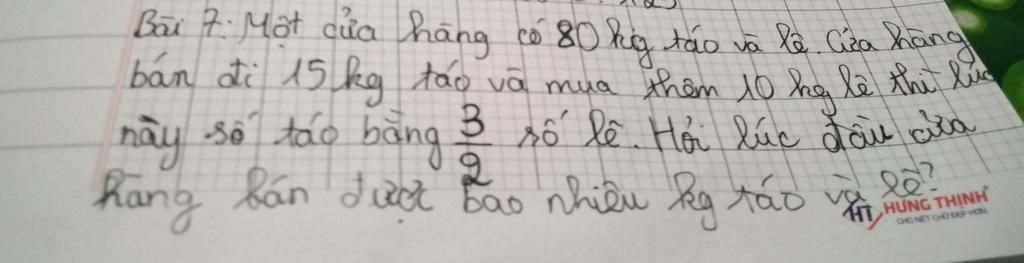 Bài 7: Một cửa hàng có 80 kg táo và lê. Cửa hàng
bán đi 15 kg táo và mua thêm 10 kg lê thì lúc
này số táo bằng 3/2 số lê. Hỏi lúc đầu cửa
hàng bán được bao nhiêu kg táo và lê?
HT HƯNG THỊNH
CHO NÉT CHỮ ĐẸP HƠN